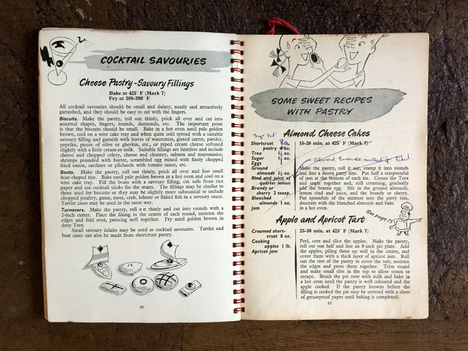 COCKTAIL SAVOURIES
Cheese Pastry - Savoury Fillings
Bake at 425° F (Mark 7)
Fry at 380-390° F
All cocktail savouries should be small and dainty, neatly and attractively
garnished, and they should be easy to eat with the fingers.
Biscuits. Make the pastry, roll out thinly, prick all over and cut into
assorted shapes, fingers, rounds, diamonds, etc. The important point
is that the biscuits should be small. Bake in a hot oven until pale golden
brown, cool on a wire cake tray and when quite cold spread with a suitable
savoury filling and garnish with leaves of watercress, gated carrot, parsley,
paprika, pieces of olive or gherkin, etc., or piped cream cheese softened
slightly with a little cream or milk. Suitable fillings are tartlets and include
cheese and chopped celery, cheese and chutney, salmon and mayonnaise,
shrimps pounded with butter, scrambled egg mixed with finely chopped,
fried onion, sardines or pilchards with tomato sauce, etc.
Boats. Make the pastry, roll out thinly, prick all over and line small
boat-shaped tins. Bake until pale golden brown in a hot oven and cool on a
wire cake tray. Fill the boats with a savoury filling, cut sails from rice
paper and use cocktail sticks for the masts. The fillings may be similar to
those used for biscuits or they may be slightly more substantial to include
chopped poultry, game, meat, cubes, lobster or flaked fish in a savoury sauce.
Tartlet cases may be used in the same way.
Turnovers. Make the pastry, roll out thinly and cut into rounds with a
2-inch cutter. Place the filling in the centre of each round, moisten the
edges and fold over, pressing well together. Fry until golden brown in
deep Trex.
Small savoury éclairs may be used as cocktail savouries. Tartlet and
boat cases can also be made from shortcrust pastry.
60
SOME SWEET RECIPES
WITH PASTRY
Almond Cheese Cakes
15-20 min. at 425° F (Mark 7)
Shortcrust
pastry 4 oz.
Trex
Sugar 1 oz.
Egg
Ground
almonds
Rind and juice of
quarter lemon
Brandy or
sherry 1 teasp.
Blanched
almonds 1 oz.
Jam
Make the pastry, roll it out, stamp it into rounds
and line about a dozen patty tins. Put half a teaspoonful
of jam at the bottom of each tin. Cream the Trex
and sugar together and, still creaming, gradually
add the beaten egg. Stir in the ground almonds,
lemon rind and juice, and the brandy or sherry.
Put spoonfuls of the mixture into the patty tins,
decorate with the blanched almonds and bake
in a hot oven.
Apple and Apricot Tart
30 min. at 425° F (Mark 7)
Creamed short-
crust 8 oz.
Cooking
apples 1 lb.
Apricot jam
Peel, core and slice the apples. Make the pastry,
roll out one half and line an 8-inch pie plate. Add
the apples, piling them up well in the centre, and
cover them with a thick layer of apricot jam. Roll
out the rest of the pastry to cover the tart, moisten
the edges and press them together. Trim round
and make small slits in the top to allow steam to
escape. Brush the pie over with milk and bake in
a hot oven until the pastry is well coloured and the
apple cooked. If the pastry browns before the
filling is cooked the pie may be covered with a sheet
of greaseproof paper until baking is completed.
61